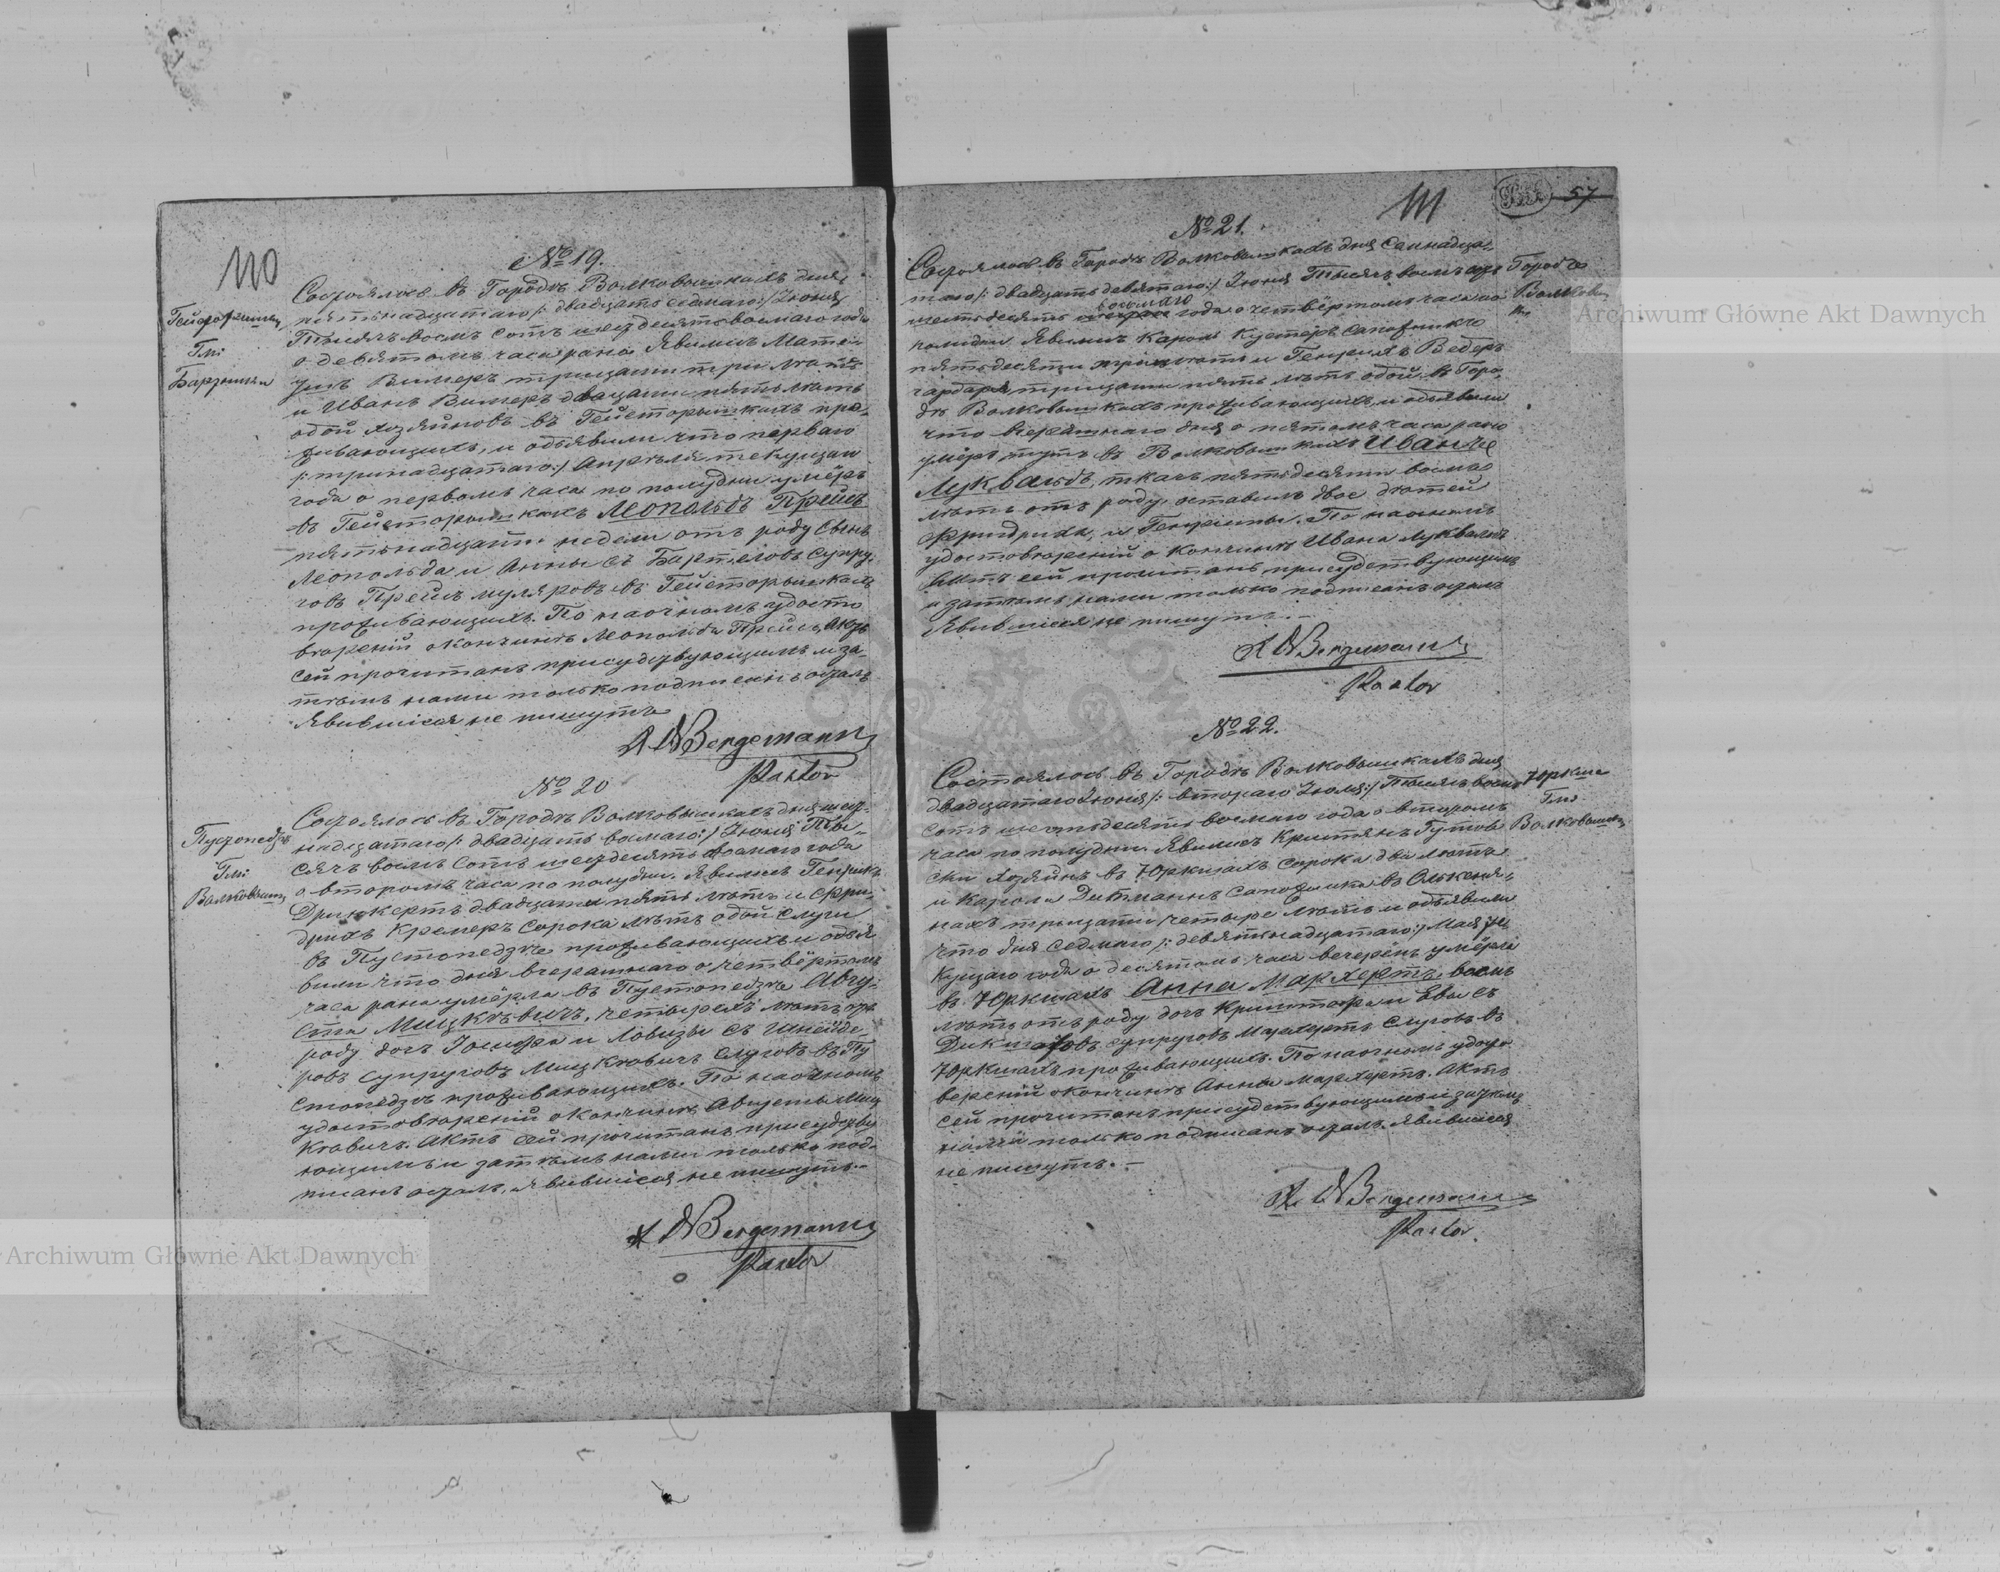 110
№ 19.
Состоялось въ Городѣ Волковышкахъ дня
пятьнадцатаго /: двадцать седмаго:/ Іюня
Тысяча восемь сотъ шестьдесятъ восмаго года
о девятомъ часа рана Явились Матеи
Вимеръ трицати три лѣтъ
и Иванъ Вимеръ двацати пять лѣтъ
обой хозяйновъ въ Гейсторышкахъ про-
живающихъ, и объявили что перваго
/: тринадцатаго:/ Апрѣля текущаи
года о первомъ часа по полудни умёръ
въ Гейсторышкахъ Леопольдъ Прейсъ
пятьнадцати недели отъ роду сынъ
Леопольда и Анны съ Бартеловъ супру-
говъ Прейсъ муляровъ въ Гейсторышкахъ
проживающихъ. По наочномъ удосто
вѣреній окончинѣ Леопольда Прейсъ, Актъ
сей прочитанъ присудствующимъ и за-
тѣмъ нами только подписанъ осталъ
Явившіися не пишутъ
Bergemann
Pastor
Гмі:
№ 20
Состоялось въ Городѣ Волковышкахъ дня шест-
надцатаго /: двадцать восмаго:/ Іюня Ты-
сячъ восемь сотъ шестдесятъ восмаго года
о второмъ часа по полудни. Явились Генрикъ
двадцати пять лѣтъ и Фри-
дрихъ Кремеръ сорока лѣтъ обой слуги
въ Пустопедзѣ проживающихъ и объя
вили что дня вчерашнаго о четвёртомъ
часа рана умёрла въ Пустопедзѣ Авгу-
ста Мицкѣвичъ, четырехъ лѣтъ отъ
роду дочъ Іосифа и Ловизы съ Шнейде-
ровъ супруговъ Мицкѣвичъ слуговъ въ Пу
стопедзѣ проживающихъ. По наочномъ
удостовѣреній окончинѣ Августы Миц
кѣвичъ. Актъ сей прочитанъ присудству
ющимъ и затѣмъ нами только под-
писанъ осталъ, Явившіися не пишутъ.-
Bergemann
Pastor
Пустопедзѣ
Гмі:
Волковышки
111
57
№ 21.
Состоялось въ Городѣ Волковышкахъ дня Семнадца-
таго /: двадцать девятаго:/ Іюня Тысячъ восемь сотъ
восмаго
шестьдесятъ года о четвёртомъ часа по
полудни Явились Кароль Кустеръ сапожникъ
пятьдесяти лѣтъ и Генрихъ Веберъ
гардаръ трицати пять лѣтъ обой въ Горо-
дѣ Волковышкахъ проживающихъ, и объявили
что вчерашнаго дня о пятомъ часа рано
умёръ тутъ въ Волковышкахъ Иванъ
Луквальдъ, ткачъ пятьдесяти восмъ
лѣтъ отъ роду, оставилъ двое дѣтей
Фридриха, и Генрметы. По наочномъ
удостовѣреній о кончинѣ Ивана Луквальдъ
Актъ сей прочитанъ присудствующимъ
и затѣмъ нами только подписанъ осталъ
Явившіися не пишутъ. -
Bergemann
Pastor
Городъ
Волковыш
ки
№ 22.
Состоялось въ Городѣ Волковышкахъ дня
двадцатаго Іюня /: втораго Іюля:/ Тысячъ восемъ
сотъ шестьдесятъ восмаго года о второмъ
часа по полудни Явились Криштянъ Гутов
ски хозяйнъ въ Юркшахъ сорока два лѣтъ
и Карола Дикманнъ сапожника въ Олькеня-
нахъ трицати четыре лѣтъ и объявили
что дня седмаго /: девятьнадцатаго:/ Мая те
кущаго года о десятомъ часа вечеромъ умёрла
въ Юркшахъ Анна Мархертъ, восмъ
лѣтъ отъ роду дочъ Криштофа и Евы съ
супруговъ Мархертъ слуговъ въ
Юркшахъ проживающихъ. По наочномъ удосто
вереній окончинѣ Анны Мархертъ. Актъ
сей прочитанъ присудствующимъ и затѣмъ
нами только подписанъ осталъ. Явившіися
не пишутъ. -
Bergemann
Pastor.
Юркше
Гмі:
Волковышки
Archiwum Główne Akt Dawnych
Archiwum Główne Akt Dawnych